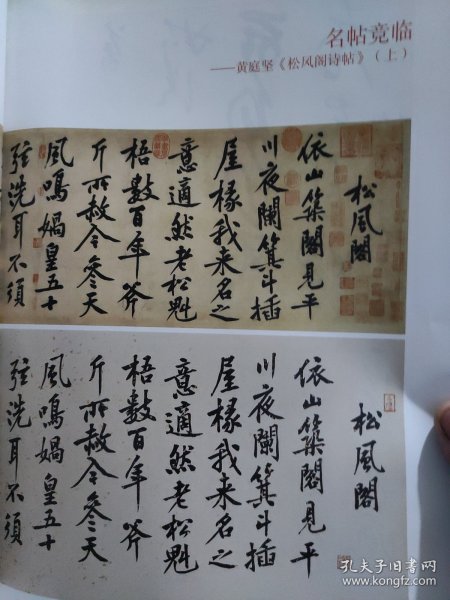 名帖竞临
——黄庭坚《松风阁诗帖》（上）
松風閣
依山築閣見平
川夜闌箕斗插
屋椽我來名之
意適然老松魁
梧數百年斧
斤所赦今參天
風鳴媧皇五十
弦洗耳不須
松風閣
依山築閣見平
川夜闌箕斗插
屋椽我來名之
意適然老松魁
梧數百年斧
斤所赦今參天
風鳴媧皇五十
弦洗耳不須
孔夫子旧书网
www.kongfz.com